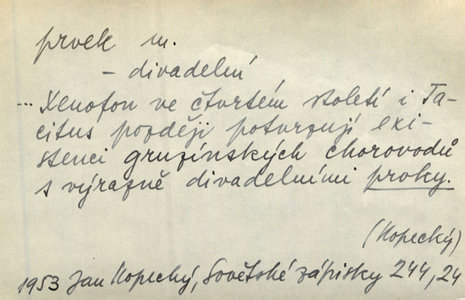 prvek m.
- divadelní
... Xenofon ve čtvrtém století i Ta-
citus později potvrzují exi-
stenci gruzínských chorovodů
s výrazně divadelními prvky.
(Kopecký)
1953 Jan Kopecký, Sovětské zápisky 244, 24